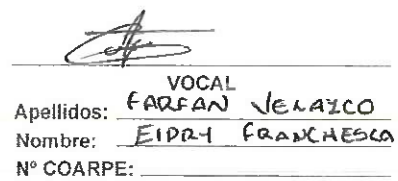 VOCAL
Apellidos: FARFAN VELAZCO
Nombre: EIDRY FRANCHESCA
Nº COARPE: